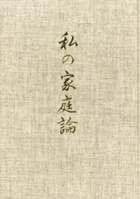 私の家庭論